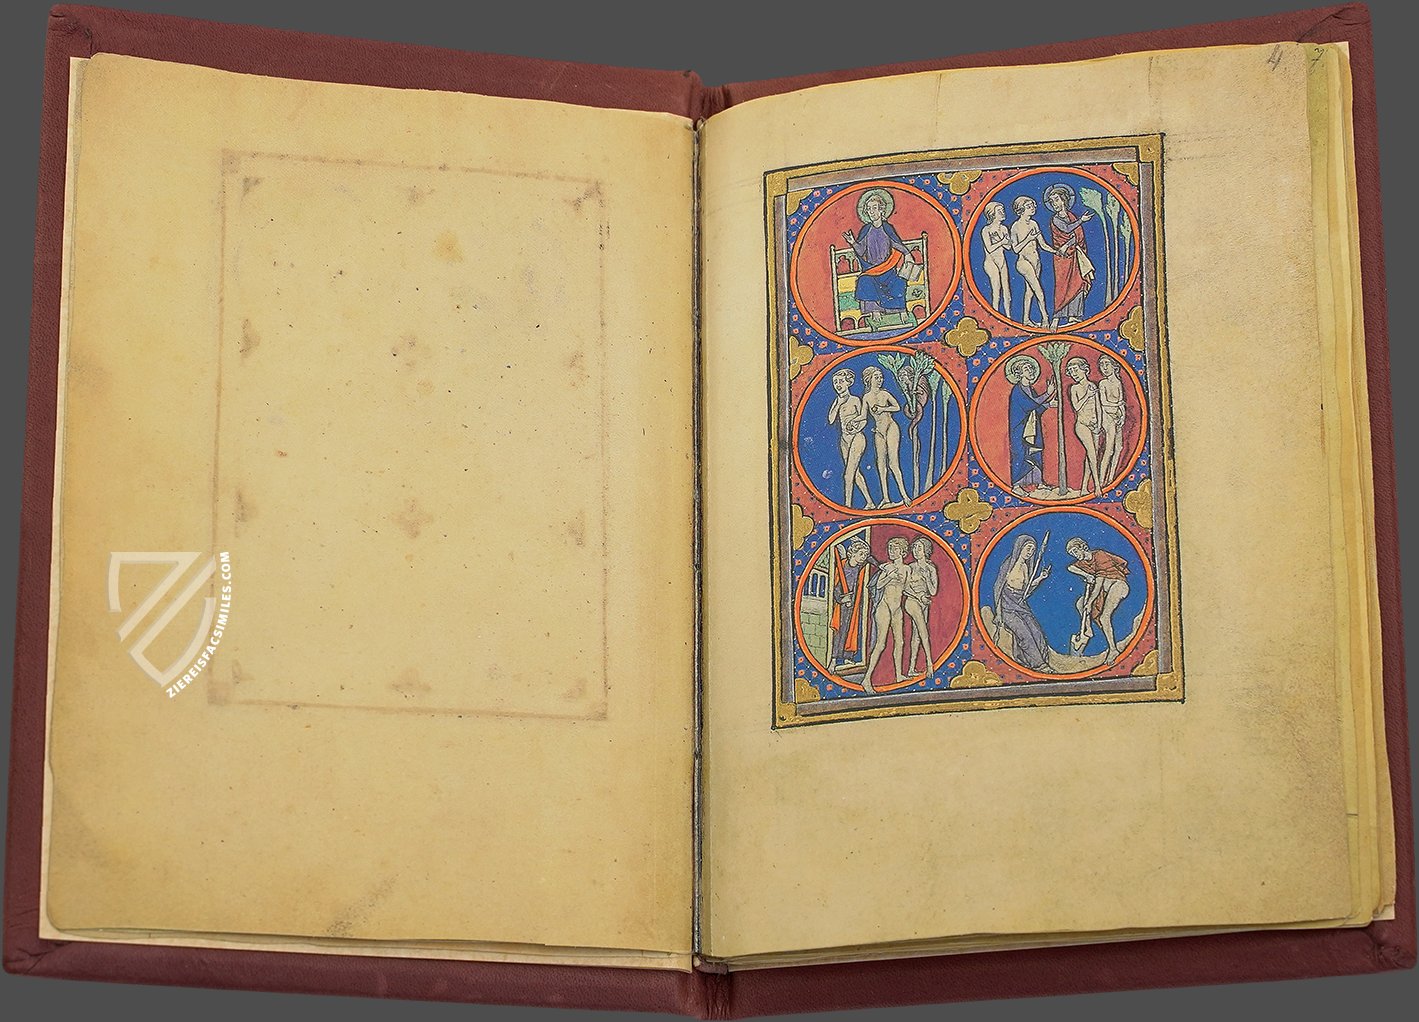 4 7
ZIEREISFACSIMILES.COM